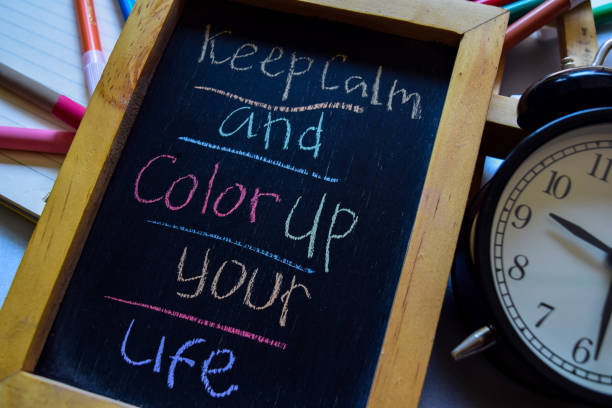 Keep Calm
and
Color up
your
Life
10
11
9
8
7
6